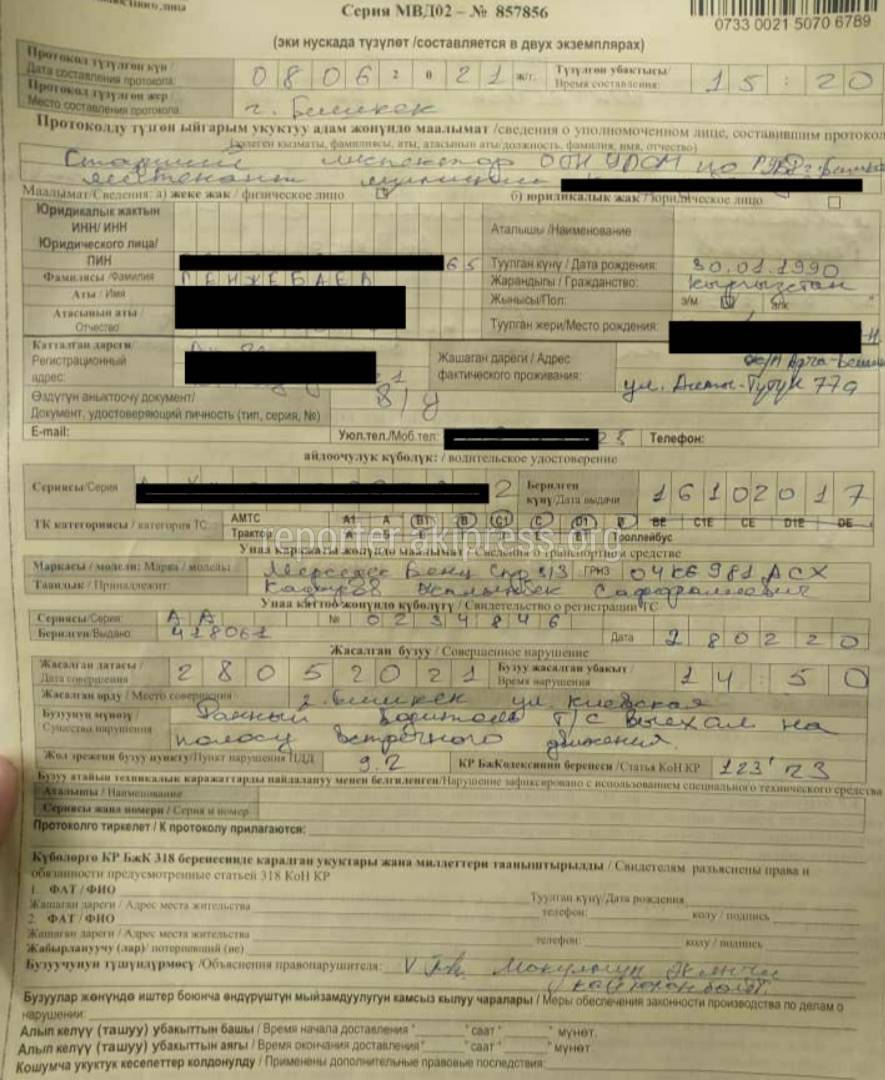 Серия МВД02 – № 857856
0733 0021 5070 6789
(эки нускада түзүлөт /составляется в двух экземплярах)
Протокол түзүлгөн күн / 0 8 0 6 2 0 2 1 ж/г. Түзүлгөн убактысы/ 1 5 : 2 0
Дата составления протокола: Время составления:
Протокол түзүлгөн жер /
Место составления протокола г. Бишкек
Протоколду түзгөн ыйгарым укуктуу адам жөнүндө маалымат /сведения о уполномоченном лице, составившим протокол
(ээлеген кызматы, фамилиясы, аты, атасынын аты/должность, фамилия, имя, отчество)
Старший инспектор
лейтенант милиции
Маалымат/Сведения: а) жеке жак / физическое лицо б) юридикалык жак / юридическое лицо
Юридикалык жактын
ИНН/ ИНН
Юридического лица/ Аталышы /Наименование
ПИН 6 5 Туулган күнү / Дата рождения: 30.01.1990
Фамилиясы /Фамилия Жарандыгы / Гражданство: Кыргызстан
Аты / Имя Жынысы/Пол: э/м
Атасынын аты /
Отчество Туулган жери/Место рождения:
Катталган дареги/
Регистрационный
адрес: 1 Жашаган дареги / Адрес
фактического проживания: ж/м Арча-Бешик
77а
Өздүгүн аныктоочу документ/
Документ, удостоверяющий личность (тип, серия, №) в/у
E-mail: Уюл.тел./Моб.тел: 25 Телефон:
айдоочулук күбөлүк: / водительское удостоверение
Сериясы/Серия 2 Берилген
күнү/Дата выдачи 1 6 1 0 2 0 1 7
ТК категориясы / категория ТС: АМТС А1 А В1 В С1 С D1 D ВЕ С1Е СЕ D1Е DE
Трактор Троллейбус
reporter.akipress.org
Унаа каражаты жөнүндө маалымат / Сведения о транспортном средстве
Маркасы / модели: Марка / модель: Мерседес Бенц Спр 313 ГРНЗ 04KG 981 ACX
Таандык / Принадлежит:
Унаа каттоо жөнүндө күбөлүгү / Свидетельство о регистрации ТС
Сериясы/Серия: А А № 0 2 3 4 8 4 6
Берилген/Выдано 418061 Дата 2 8 0 2 2 0
Жасалган бузуу / Совершенное нарушение
Жасалган датасы /
Дата совершения 2 8 0 5 2 0 2 1 Бузуу жасалган убакыт/
Время нарушения 1 4 : 5 0
Жасалган орду / Место совершения г. Бишкек ул. Киевская
Бузуунун мүнөзү /
Существо нарушения Данный водитель Т/С выехал на
полосу встречного движения.
Жол эрежени бузуу пункту/Пункт нарушения ПДД 9.2 КР БжКодексинин беренеси /Статья КоН КР 123' ч3
Бузуу атайын техникалык каражаттарды пайдалануу менен белгиленген/Нарушение зафиксировано с использованием специального технического средства
Аталышы / Наименование
Сериясы жана номери / Серия и номер
Протоколго тиркелет / К протоколу прилагаются:
Күбөлөргө КР БжК 318 беренесинде каралган укуктары жана милдеттери тааныштырылды / Свидетелям разъяснены права и
обязанности предусмотренные статьей 318 КоН КР
1. ФАТ / ФИО Туулган күнү/Дата рождения
Жашаган дареги / Адрес места жительства телефон: колу / подпись
2. ФАТ / ФИО
Жашаган дареги / Адрес места жительства телефон: колу / подпись
Жабырлануучу (лар)/ потерпевший (ие)
Бузуучунун түшүндүрмөсү /Объяснения правонарушителя:
Бузуулар жөнүндө иштер боюнча өндүрүштүн мыйзамдуулугун камсыз кылуу чаралары / Меры обеспечения законности производства по делам о
нарушении:
Алып келүү (ташуу) убакыттын башы / Время начала доставления "____" саат "____" мүнөт.
Алып келүү (ташуу) убакыттын аягы / Время окончания доставления "____" саат "____" мүнөт
Кошумча укуктук кесепеттер колдонулду / Применены дополнительные правовые последствия: